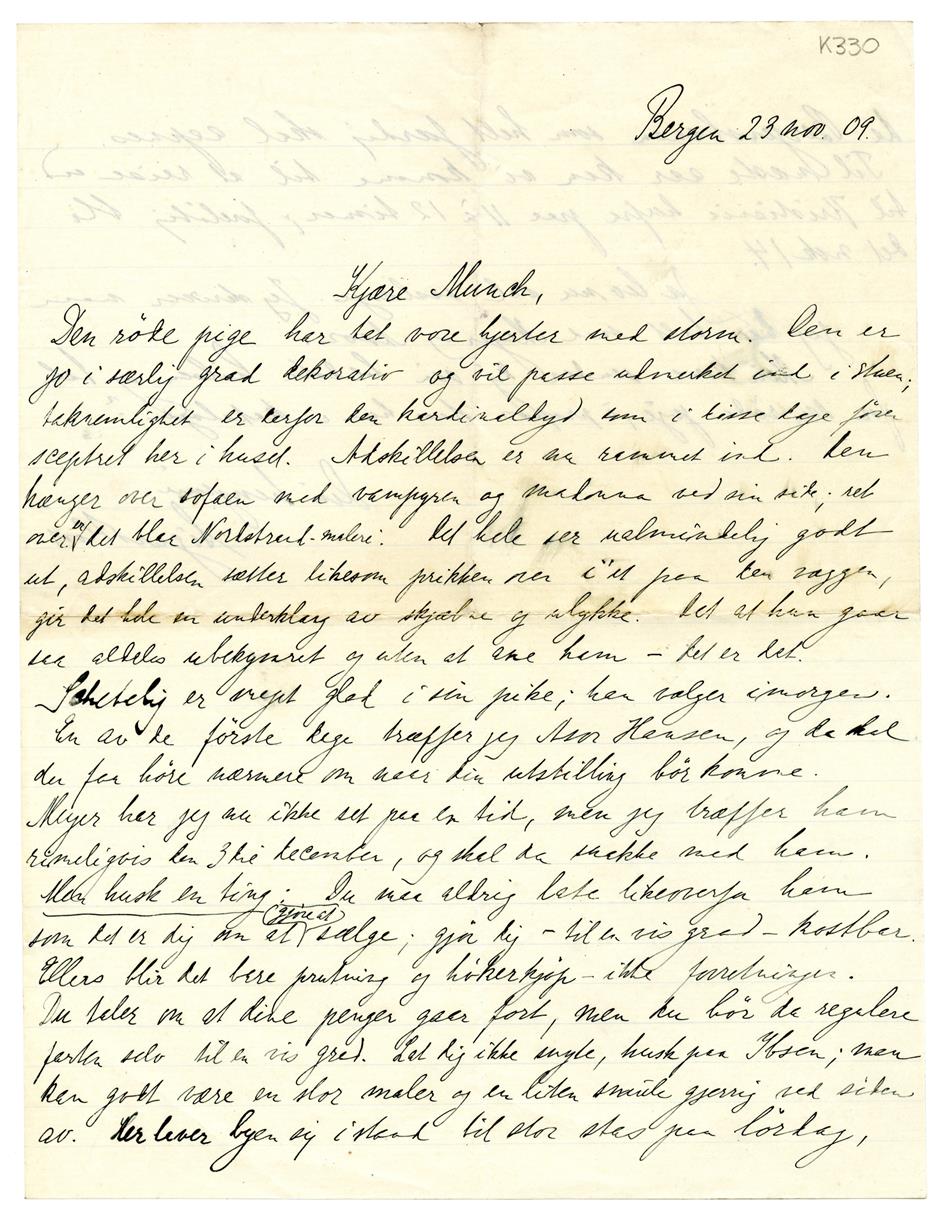 K330
Bergen 23 nov. 09.
Kjære Munch,
Den røde pige har tat vore hjerter med storm. Den er
jo i særlig grad dekorativ og vil passe udmerket ind i stuen;
taknemlighet er derfor den kardinaldyd som i disse dage fører
sceptret her i huset. Adskillelsen er nu rammet ind. Den
hænger over sofaen med vampyren og madonna ved sin side; ret
over en det blaa Nordstrand-maleri. Det hele ser ualmindelig godt
ut, adskillelsen sætter likesom prikken over i'et paa den væggen,
gir det hele en underklang av skjæbne og ulykke. Det at hun gaar
saa aldeles ubekymret og uten at ane ham – det er det.
Schetelig er meget glad i sin pike; han vælger imorgen.
En av de første dage træffer jeg Asor Hansen, og da skal
du faa høre nærmere om naar din utstilling bør komme.
Meyer har jeg nu ikke set paa en tid, men jeg træffer ham
rimeligvis den 3die december, og skal da snakke med ham.
Men husk en ting: Du maa aldrig late likeoverfor ham
som det er dig om at gjøre at sælge; gjør dig – til en vis grad – kostbar.
Ellers blir det bare prutning og høkerkjøp – ikke forretninger.
Du taler om at dine penger gaar fort, men du bør da regulere
farten selv til en vis grad. Lat dig ikke snyte, husk paa Ibsen; man
kan godt være en stor maler og en liten smule gjerrig ved siden
av. Her laver byen sig istand til stor stas paa lørdag,